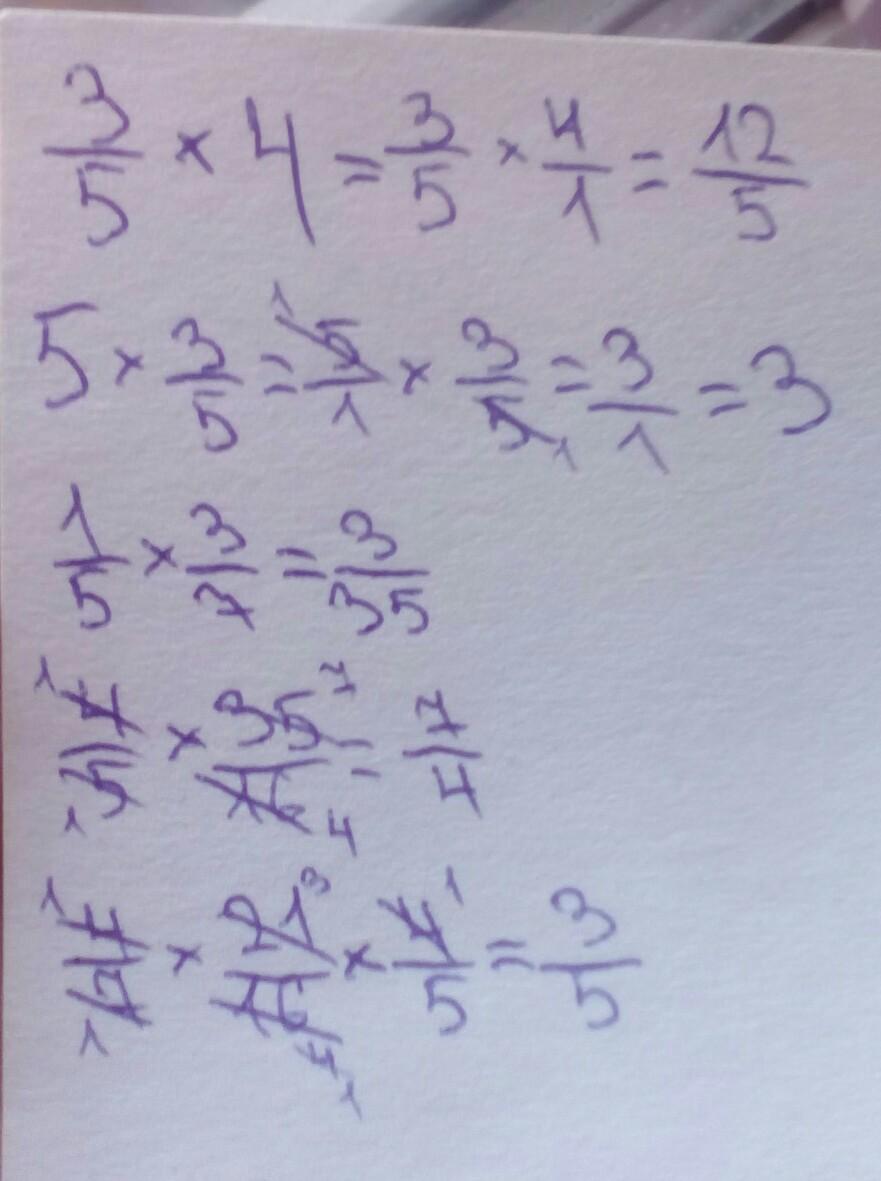 3/5 × 4 = 3/5 × 4/1 = 12/5
5 × 3/5 = 5/1 × 3/5 = 3/1 = 3
1/5 × 3/7 = 3/35
4/5 × 35/16 = 7/4
4/7 × 21/16 × 4/5 = 3/5